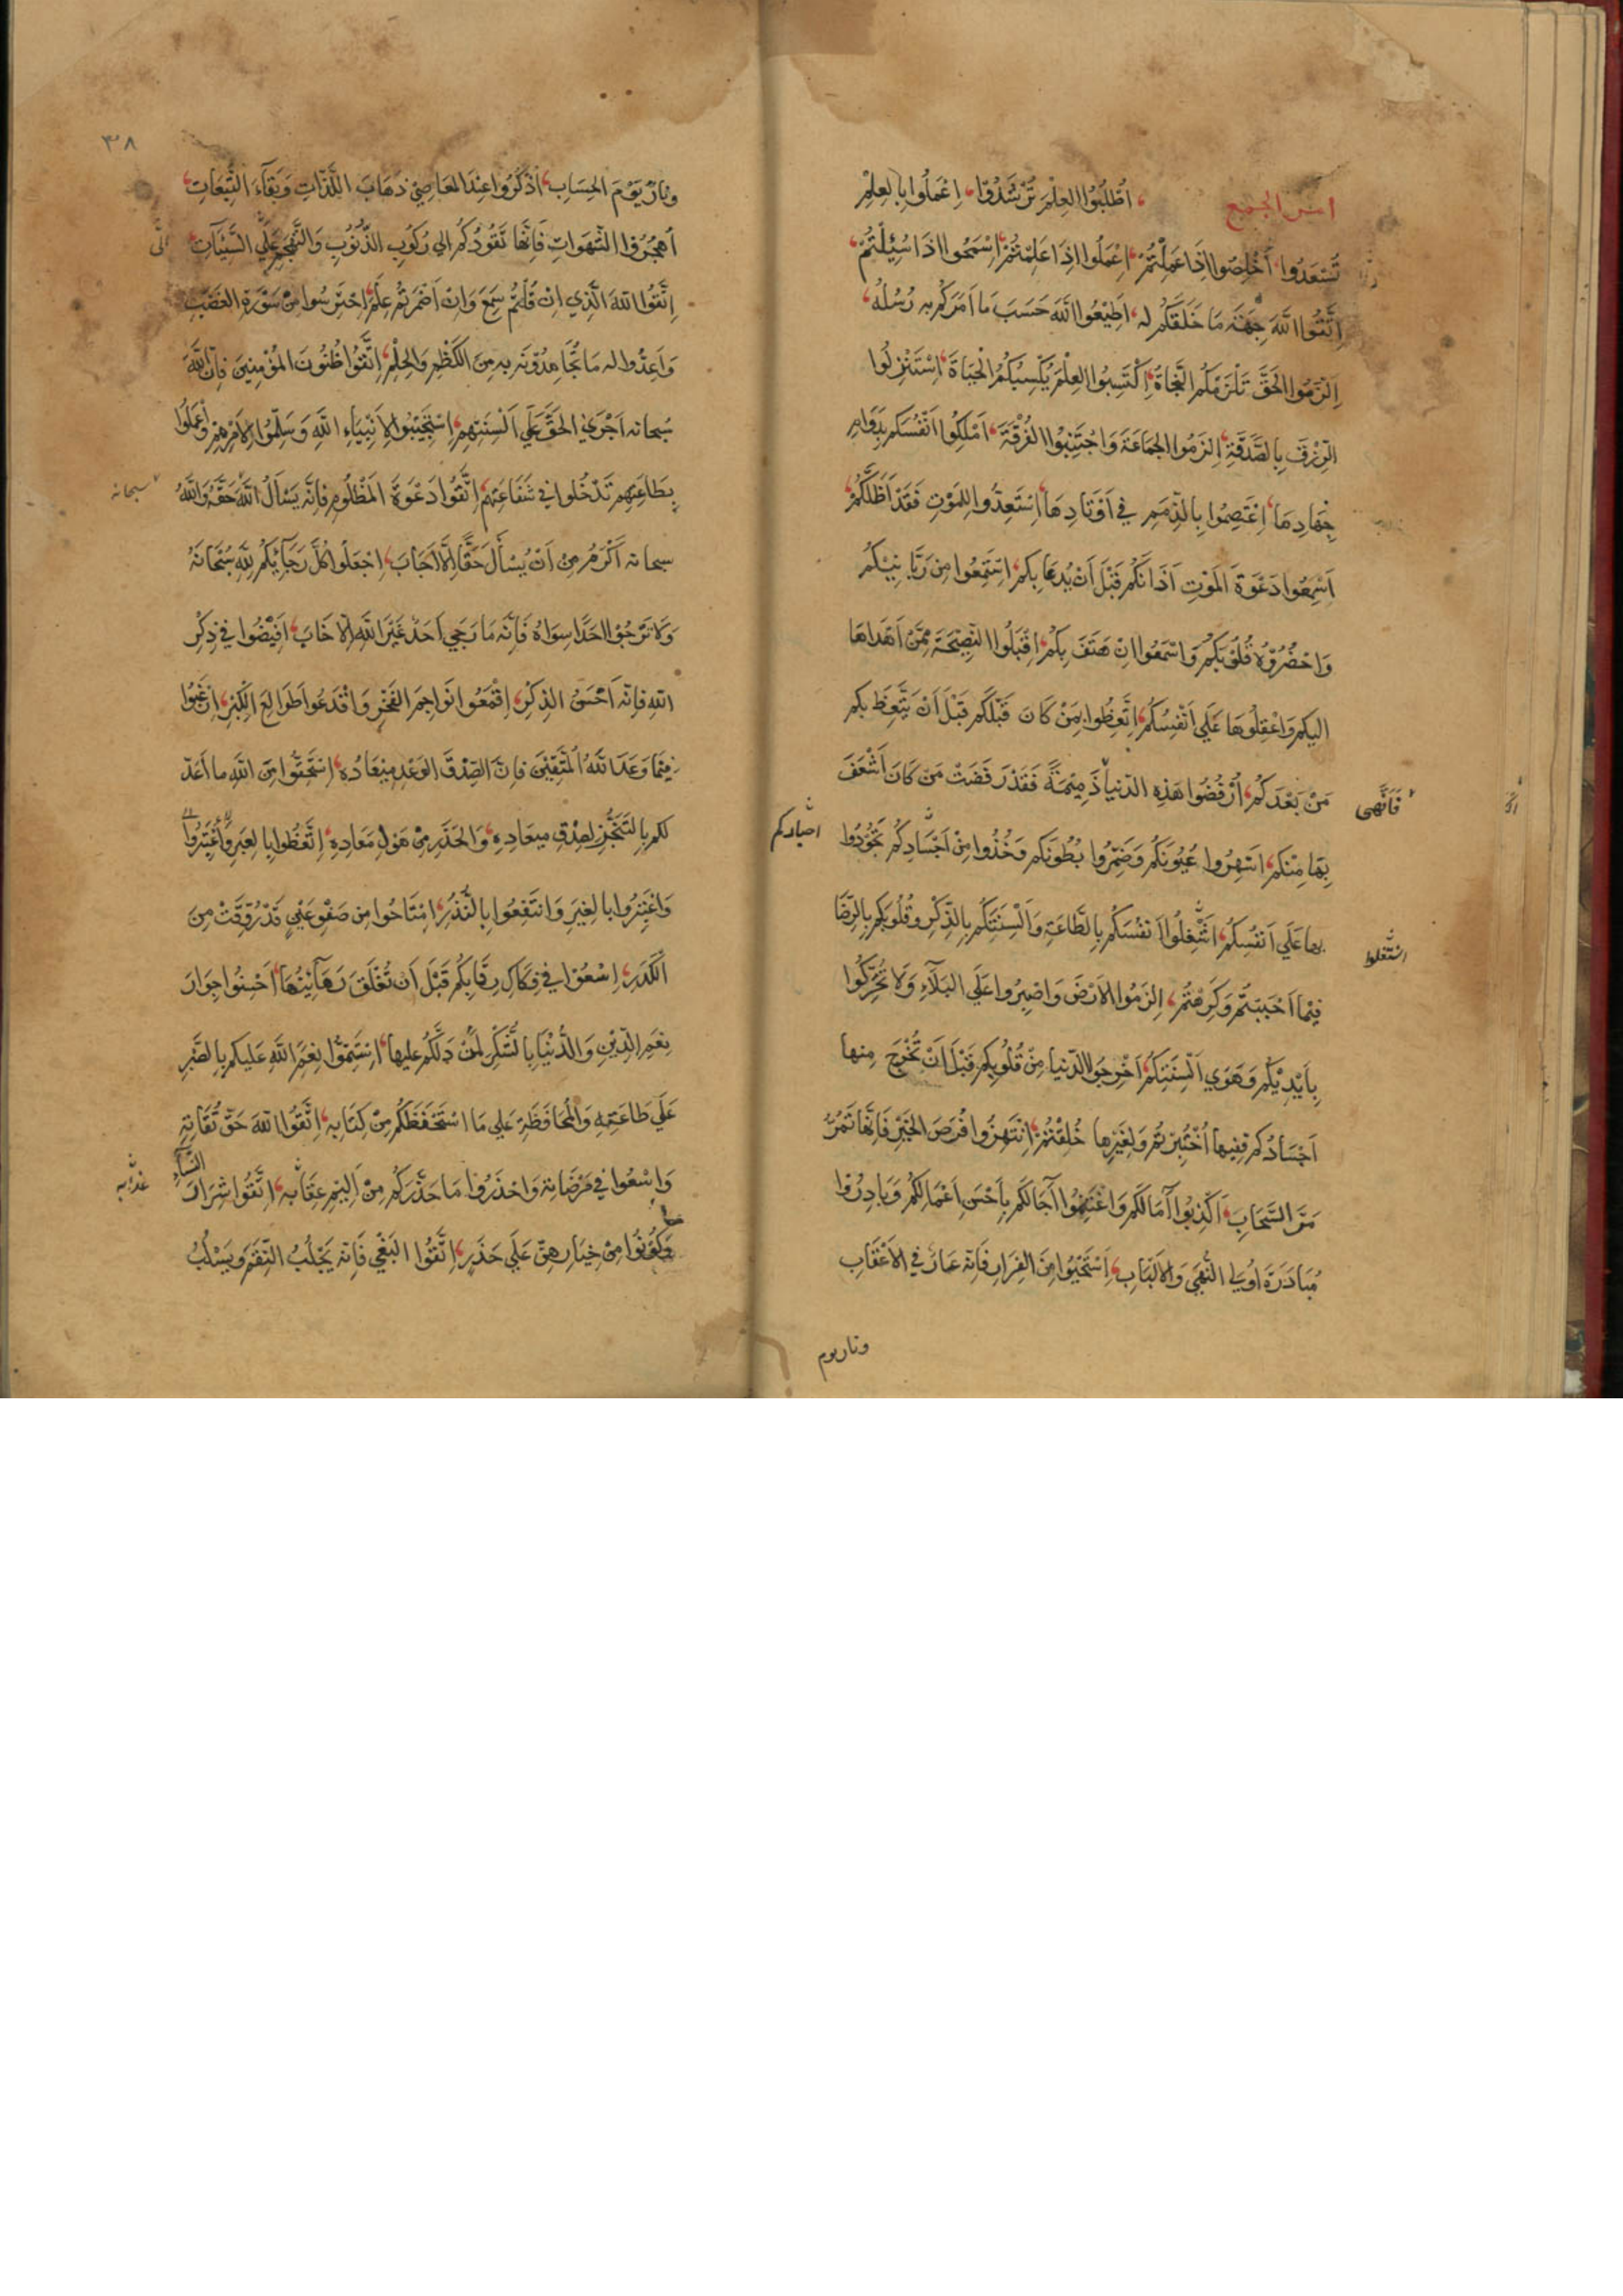 أمر الجميع ، اُطْلُبُوا العِلْمَ تُرْشَدُوا ، اِعْمَلُوا بِالعِلْمِ
تَسْعَدُوا ، أَخْلِصُوا اِذَا عَمِلْتُمْ ، اِعْمَلُوا اِذَا عَلِمْتُمْ ، اِسْمَحُوا اذَا سُئِلْتُمْ ،
اِتَّقُوا اللَّهَ جِهَةَ مَا خَلَقَكُم له ، اَطِيْعُوا اللَّهَ حَسَبَ ما اَمَرَكُم به رُسُلُه ،
اِلْزَمُوا الحَقَّ تَلْزَمْكُم النَّجَاةُ ، اِكْتَسِبُوا العِلْمَ يَكْسِبْكُمُ الْحَيَاةَ ، اِسْتَنْزِلُوا
الرِّزْقَ بِالصَّدَقَةِ ، اِلْزَمُوا الجَمَاعَةَ وَاجْتَنِبُوا الفُرْقَةَ ، اَمْلِكُوا اَنْفُسَكُم بِدَوَامِ
جِهَادِهَا ، اِعْتَصِمُوا بِالذِّمَمِ فِي اَوْتَادِهَا ، اِسْتَعِدُّوا لِلمَوْتِ فَقَدْ اَظَلَّكُمْ ،
اَسْمِعُوا دَعْوَةَ المَوْتِ آذَانَكُم قَبْلَ اَنْ يُدعَا بِكم ، اسْتَمِعُوا مِنْ رَبَّانِيِّكُمْ
وَاحْضُرُوْهُ قُلُوْبَكُمْ وَاسْمَعُوا اِنْ هَتَفَ بِكُمْ ، اِقْبَلُوا النَّصِيْحَةَ مِمَّنْ اَهْدَاهَا
اليكم وَاعْقِلُوهَا عَلَي اَنْفُسِكُمْ ، اِتَّعِظُوا بِمَنْ كَانَ قَبْلَكُم قَبْلَ اَنْ يَتَّعِظَ بكم
مَنْ بَعْدَكُمْ ، اُرْفُضُوا هَذِهِ الدّنيا ذَمِيْمَةً فَقَدْ رَفَضَتْ مَنْ كَانَ اَشْعَفَ
فَاِنَّهٰي
بِهَا مِنْكم ، اسْهِرُوا عُيُونَكُم وَضَمِّرُوا بُطُونَكم وَخُذُوا مِنْ اَجْسَادِكُم تَجُوْدُوا
اجسادكم
بها عَلَي اَنْفُسِكُمْ ، اشْغِلُوا اَنفُسَكُم بِالطَّاعَةِ وَاَلْسِنَتَكُم بِالذِّكْرِ وقُلُوبَكم بِالرِّضَا
اشتغلوا
فِيْمَا اَحْبَبْتُم وَكَرِهْتُمْ ، اِلْزَمُوا الاَرْضَ وَاصْبِرُوا عَلَي البَلَآءِ وَلَا تُحَرِّكُوا
بِاَيْدِيْكُم وَهَوَي اَلْسِنَتِكُمْ ، اَخْرِجُوا الدّنيا مِنْ قُلُوبِكُم قَبْلَ اَنْ تَخْرُجَ مِنها
اَجْسَادُكُم فَفِيها اُخْتُبِرْتُم وَلِغَيْرِها خُلِقْتُمْ ، اِنْتَهِزُوا فُرَصَ الخَيْرِ فَاِنَّهَا تَمُرُّ
مَرَّ السَّحَابِ ، اَكْذِبُوا آمَالَكُم وَاغْتَنِمُوا آجَالَكُم بِاَحْسَنِ اَعْمَالِكُمْ وَبَادِرُوا
مُبَادَرَةَ اُوْلِي النُّهَي وَالاَلْبَابِ ، اِسْتَحْيُوا مِنَ الفِرَارِ فَاِنَّه عَارٌ فِي الاَعْقَابِ
ونار يوم
٣٨
وَنَارٌ يَوْمَ الحِسَابِ ، اُذْكُرُوا عِنْدَ المَعَاصِيْ ذَهَابَ اللَّذَّاتِ وَبَقَآءَ التَّبِعَاتِ ،
اُهْجُرُوا الشَّهَوَاتِ فَاِنَّهَا تَقُودُكُم الي رُكُوبِ الذُّنُوْبِ وَالتَّهَجُّمِ عَلَي السَّيِّئَاتِ ،
اِتَّقُوا اللهَ الَّذِي اِنْ قُلْتُمْ سَمِعَ وَاِنْ اَضْمَرْتُم عَلِمَ ، اِحْتَرِسُوا مِنْ سَوْرَةِ الغَضَبِ
وَاَعِدُّوا له مَا تُجَاهِدُوْنَه به مِنَ الكَظْمِ وَالحِلْمِ ، اِتَّقُوا ظُنُونَ المُؤْمِنِينَ فَاِنَّ اللَّهَ
سُبحانه اَجْرَي الحَقَّ عَلَي اَلْسِنَتِهِمْ ، اِسْتَجِيْبُوا لِاَنْبِيَاءِ اللَّهِ وَسَلِّمُوا لِاَمْرِهِمْ وَاعْمَلُوا
بِطَاعَتِهِم تَدْخُلُوا فِي شَفَاعَتِهِم ، اِتَّقُوا دَعْوَةَ المَظْلُومِ فَاِنَّه يَسْأَلُ اللَّهَ حَقَّهُ وَاللَّهُ
سبحانه
سبحانه اَكْرَمُ مِنْ اَنْ يُسْأَلَ حَقًّا اِلَّا اَجَابَ ، اِجْعَلُوا كُلَّ رَجَآئِكُمْ لِلَّهِ سُبْحَانَهُ
وَلَا تَرْجُوْا اَحَدًا سِوَاهُ فَاِنَّه مَا رَجَي اَحَدٌ غَيْرَ اللَّهِ اِلَّا خَابَ ، اَفِيْضُوا فِي ذِكْرِ
اللهِ فَاِنَّه اَحْسَنُ الذِّكْرِ ، اِقْمَعُوا نَوَاجِمَ الفَخْرِ وَاقْدَعُوا طَوَالِعَ الكِبْرِ ، اِرْغَبُوا
فِيْمَا وَعَدَ اللَّهُ المُتَّقِيْنَ فَاِنَّ اَصْدَقَ الوَعْدِ مِيْعَادُه ، اِسْتَحِقُّوا مِنَ اللَّهِ ما اَعَدَّ
لكم بِالتَّنَجُّزِ لِصِدْقِ مِيعَادِهِ ، وَالحَذَرِ مِنْ هَوْلِ مَعَادِهِ ، اِتَّعِظُوا بِالعِبَرِ وَاعْتَبِرُوا
وَاعْتَبِرُوا بِالغِيَرِ وَانْتَفِعُوا بِالنُّذُرِ ، اِمْتَاحُوا مِن صَفْوِ عَيْنٍ قَدْ رُوِّقَتْ مِنَ
الكَدَرِ ، اِسْعَوْا فِي فِكَاكِ رِقَابِكُم قَبْلَ اَن تُغْلَقَ رَهَآئِنُهَا ، اَحْسِنُوا جِوَارَ
نِعَمِ الدِّيْنِ وَالدُّنْيَا بِالشُّكْرِ لِمَنْ دَلَّكُم عليها ، اِسْتَتِمُّوا نِعَمَ اللَّهِ عَليكم بِالصَّبْرِ
عَلَي طَاعَتِهِ وَالمُحَافَظَةِ عَلي مَا اسْتَحْفَظَكُم مِنْ كِتَابِه ، اِتَّقُوا اللهَ حَقَّ تُقَاتِهِ
وَاسْعَوا فِي مَرْضَاتِه وَاحْذَرُوا مَا حَذَّرَكُم مِنْ اَلِيْمِ عِقَابِه ، اتَّقُوا شِرَارَ النِّسَآءِ
عذابه
وَكُوْنُوا مِنْ خِيَارِهِنَّ عَلَي حَذَرٍ ، اِتَّقُوا البَغْيَ فَاِنَّه يَجْلُبُ النِّقَمَ وَيَسْلُبُ